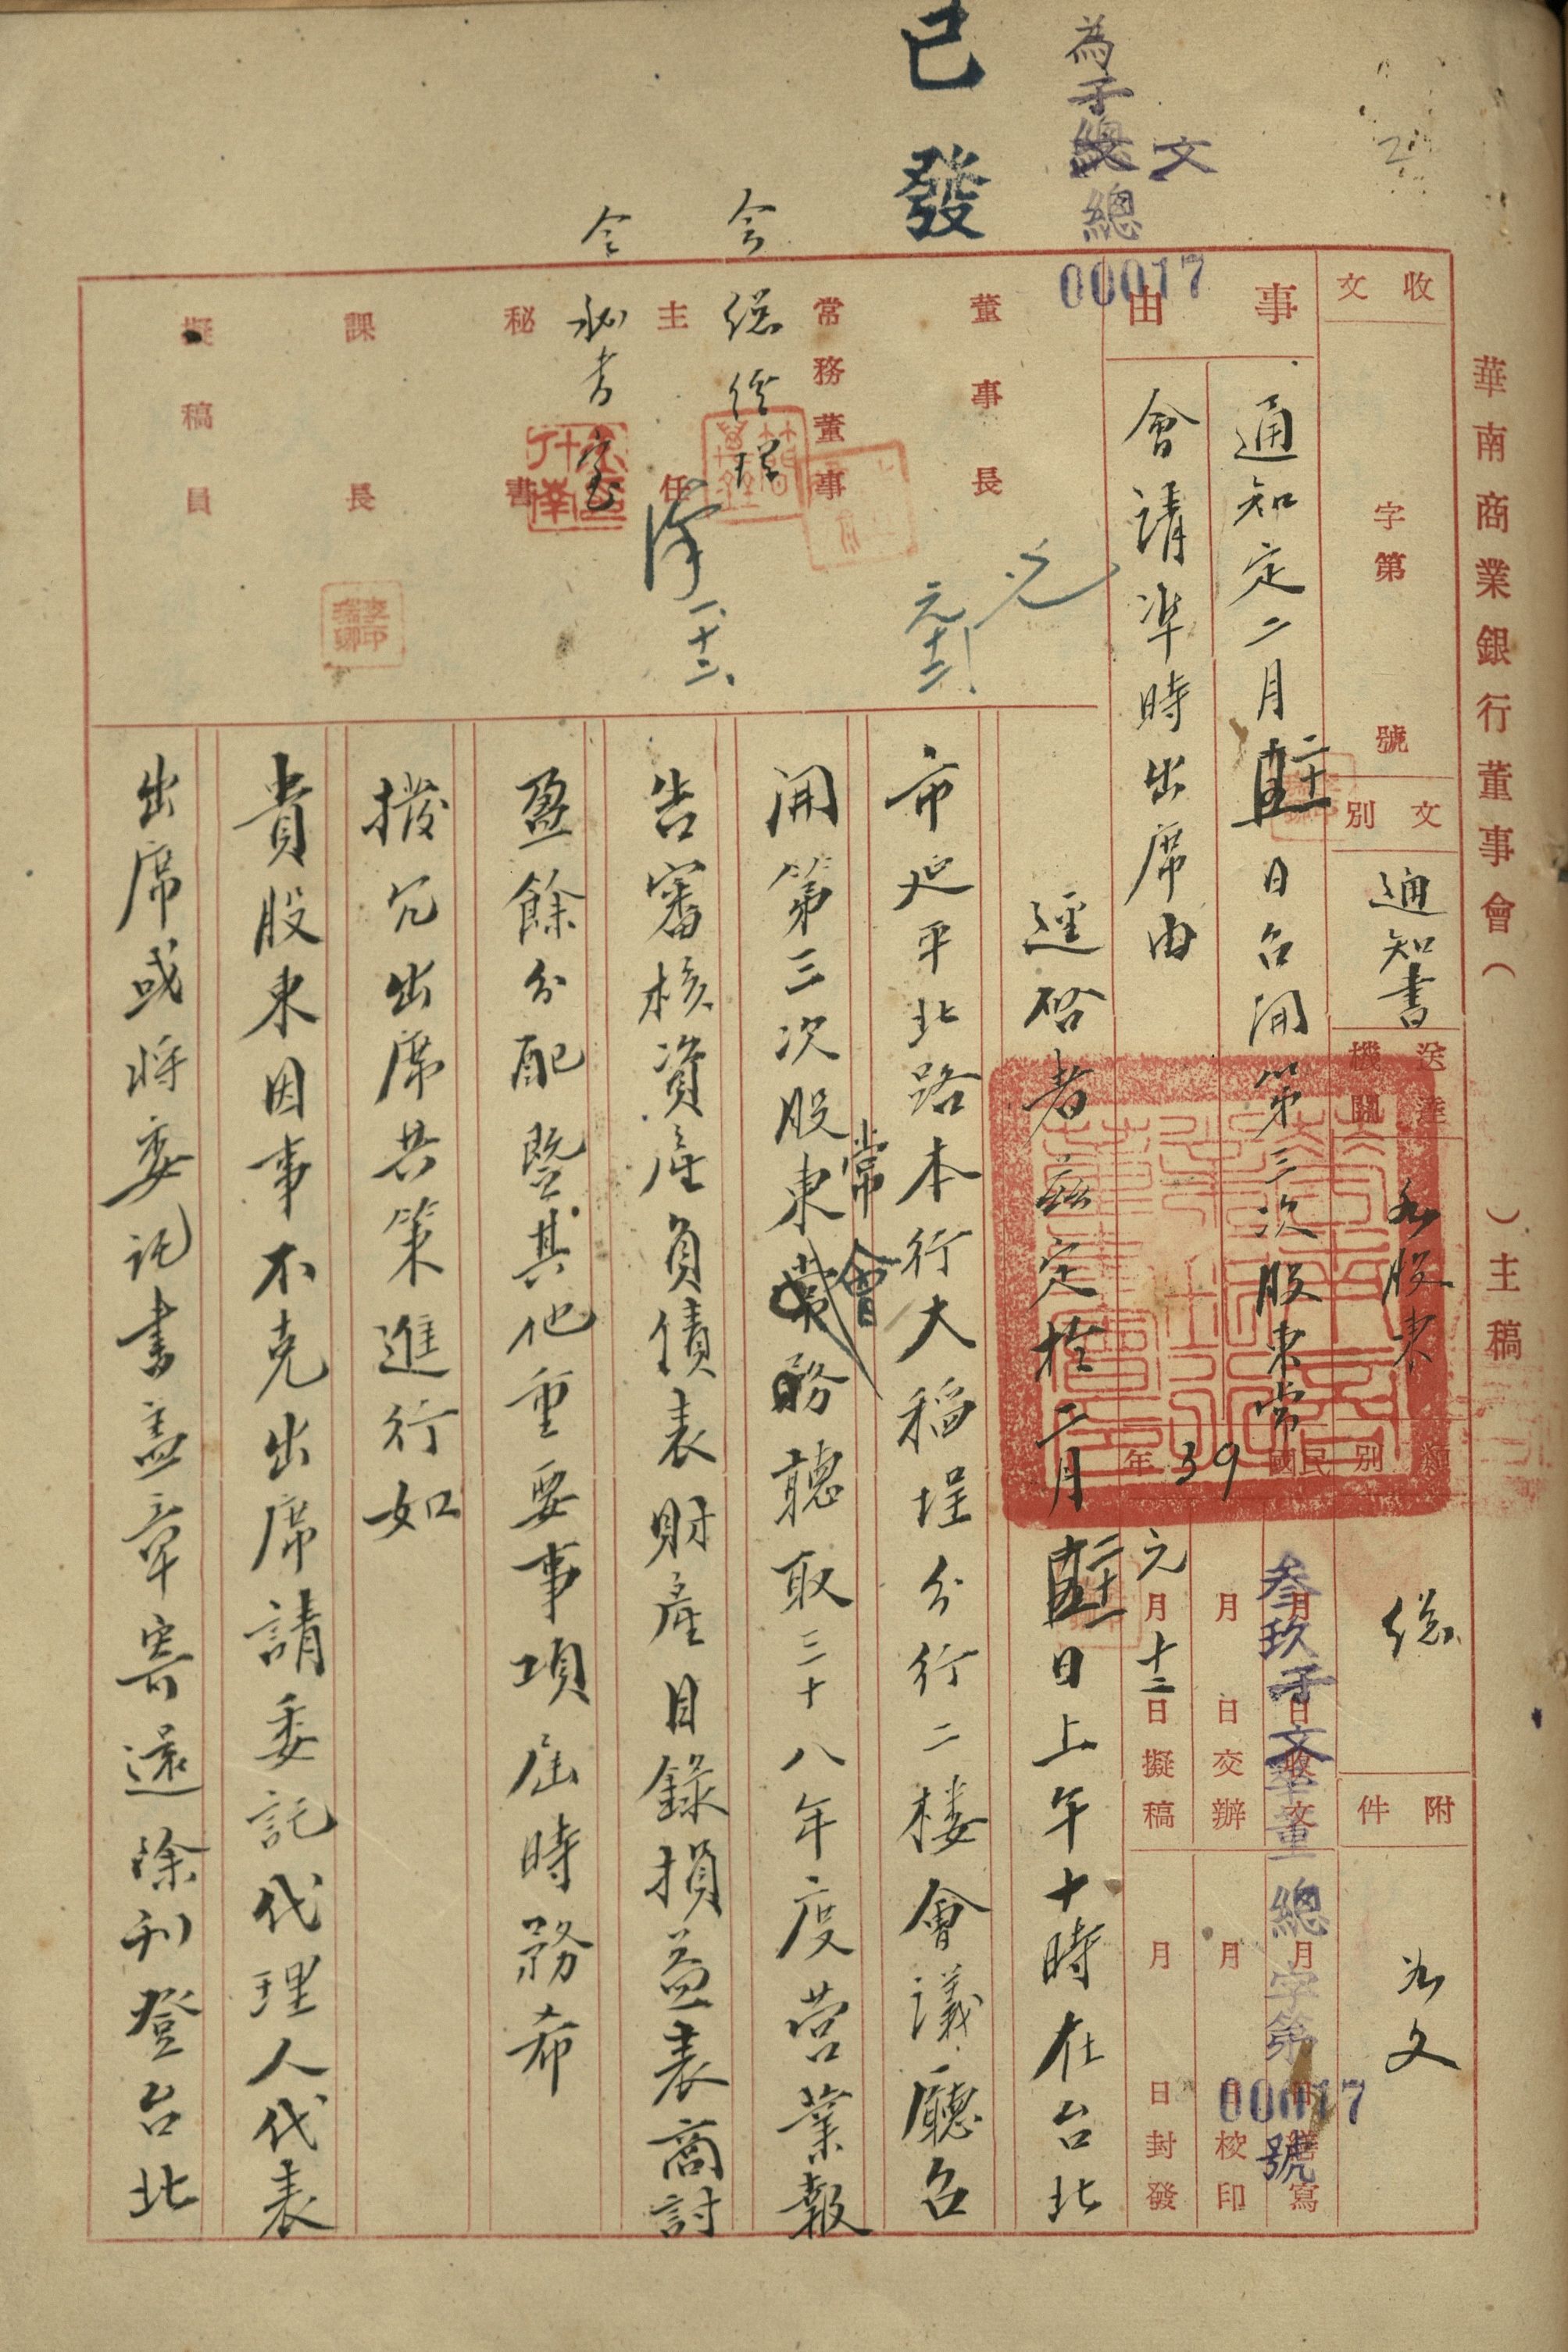 華南商業銀行董事會（　）主稿
收文
字第　號
文別
通知書
送達機關
各股東
類別
總
附件
如文
事由
通知定二月二十一日召開第三次股東常
會請準時出席由
民國39年
元月十二日擬稿
月　日交辦
月　日收文
月　日繕寫
月　日校印
月　日封發
叁玖子文華董總字第00017號
為子總文總
00017
已發
董事長
元十二
常務董事
會總經理
主任
一、十二、
會秘書室
秘書
課長
擬稿員
逕啓者茲定於二月二十一日上午十時在台北
市延平北路本行大稻埕分行二樓會議廳召
開第三次股東常會聽取三十八年度營業報
告審核資產負債表財產目錄損益表商討
盈餘分配暨其他重要事項屆時務希
撥冗出席共策進行如
貴股東因事不克出席請委託代理人代表
出席或將委託書蓋章寄還除刊登台北